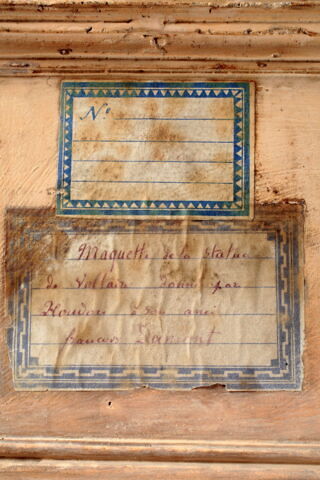 N°
Maquette de la statue
de Voltaire donné par
Houdon à son ami
francois